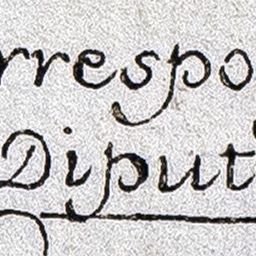 rrespo
Diput